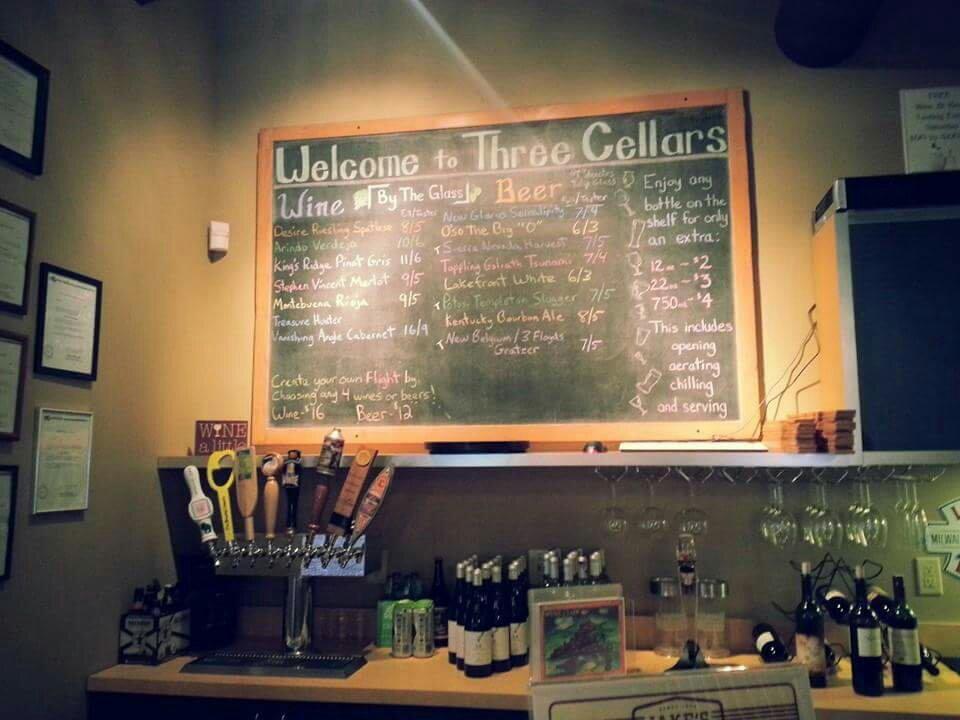 Welcome to Three Cellars
Wine By The Glass
Desire Riesling Spatlese 8/5
Arindo Verdeja 10/6
King's Ridge Pinot Gris 11/6
Stephen Vincent Merlot 9/5
Montebuena Rioja 9/5
Treasure Hunter
Vanishing Angle Cabernet 16/9
Create your own Flight by
Choosing any 4 wines or beers!
Wine-$16 Beer-$12
Beer
New Glarus Serendipity 7/4
O'so The Big "O" 6/3
Sierra Nevada Harvest 7/5
Toppling Goliath Tsunami 7/4
Lakefront White 6/3
Potosi Templeton Slugger 7/5
Kentucky Bourbon Ale 8/5
New Belgium/3 Floyds
Gratzer 7/5
Enjoy any
bottle on the
shelf for only
an extra:
12oz - $2
22oz - $3
750mL - $4
This includes
opening
aerating
chilling
and serving
WINE
a little
FREE
JAKE'S